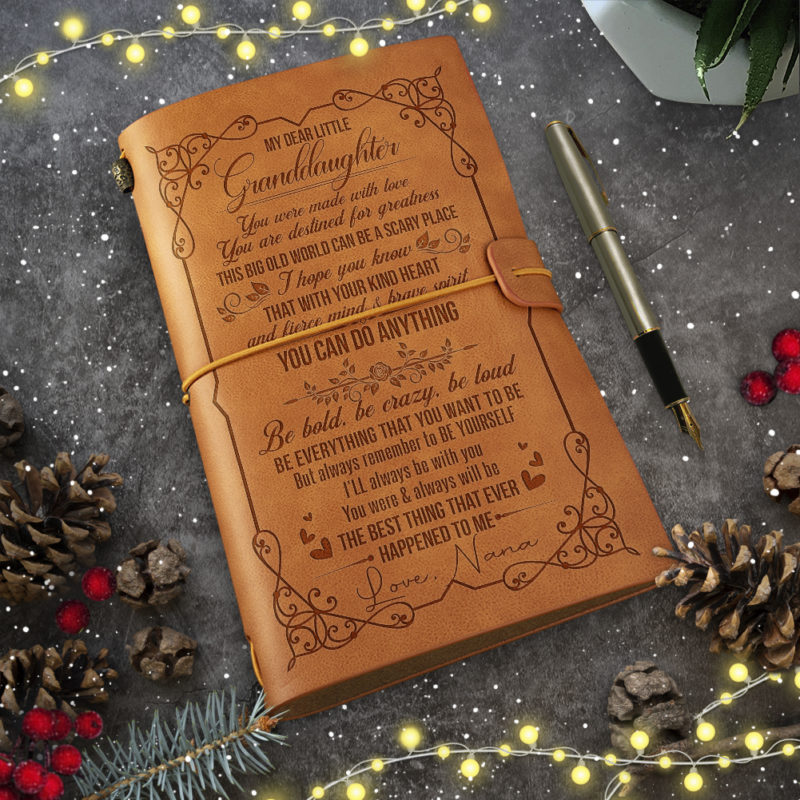 MY DEAR LITTLE
Granddaughter
You were made with love
You are destined for greatness
THIS BIG OLD WORLD CAN BE A SCARY PLACE
I hope you know
THAT WITH YOUR KIND HEART
and fierce mind & brave spirit
YOU CAN DO ANYTHING
Be bold, be crazy, be loud
BE EVERYTHING THAT YOU WANT TO BE
But always remember to BE YOURSELF
I'LL always be with you
You were & always will be
THE BEST THING THAT EVER
HAPPENED TO ME
Love, Nana